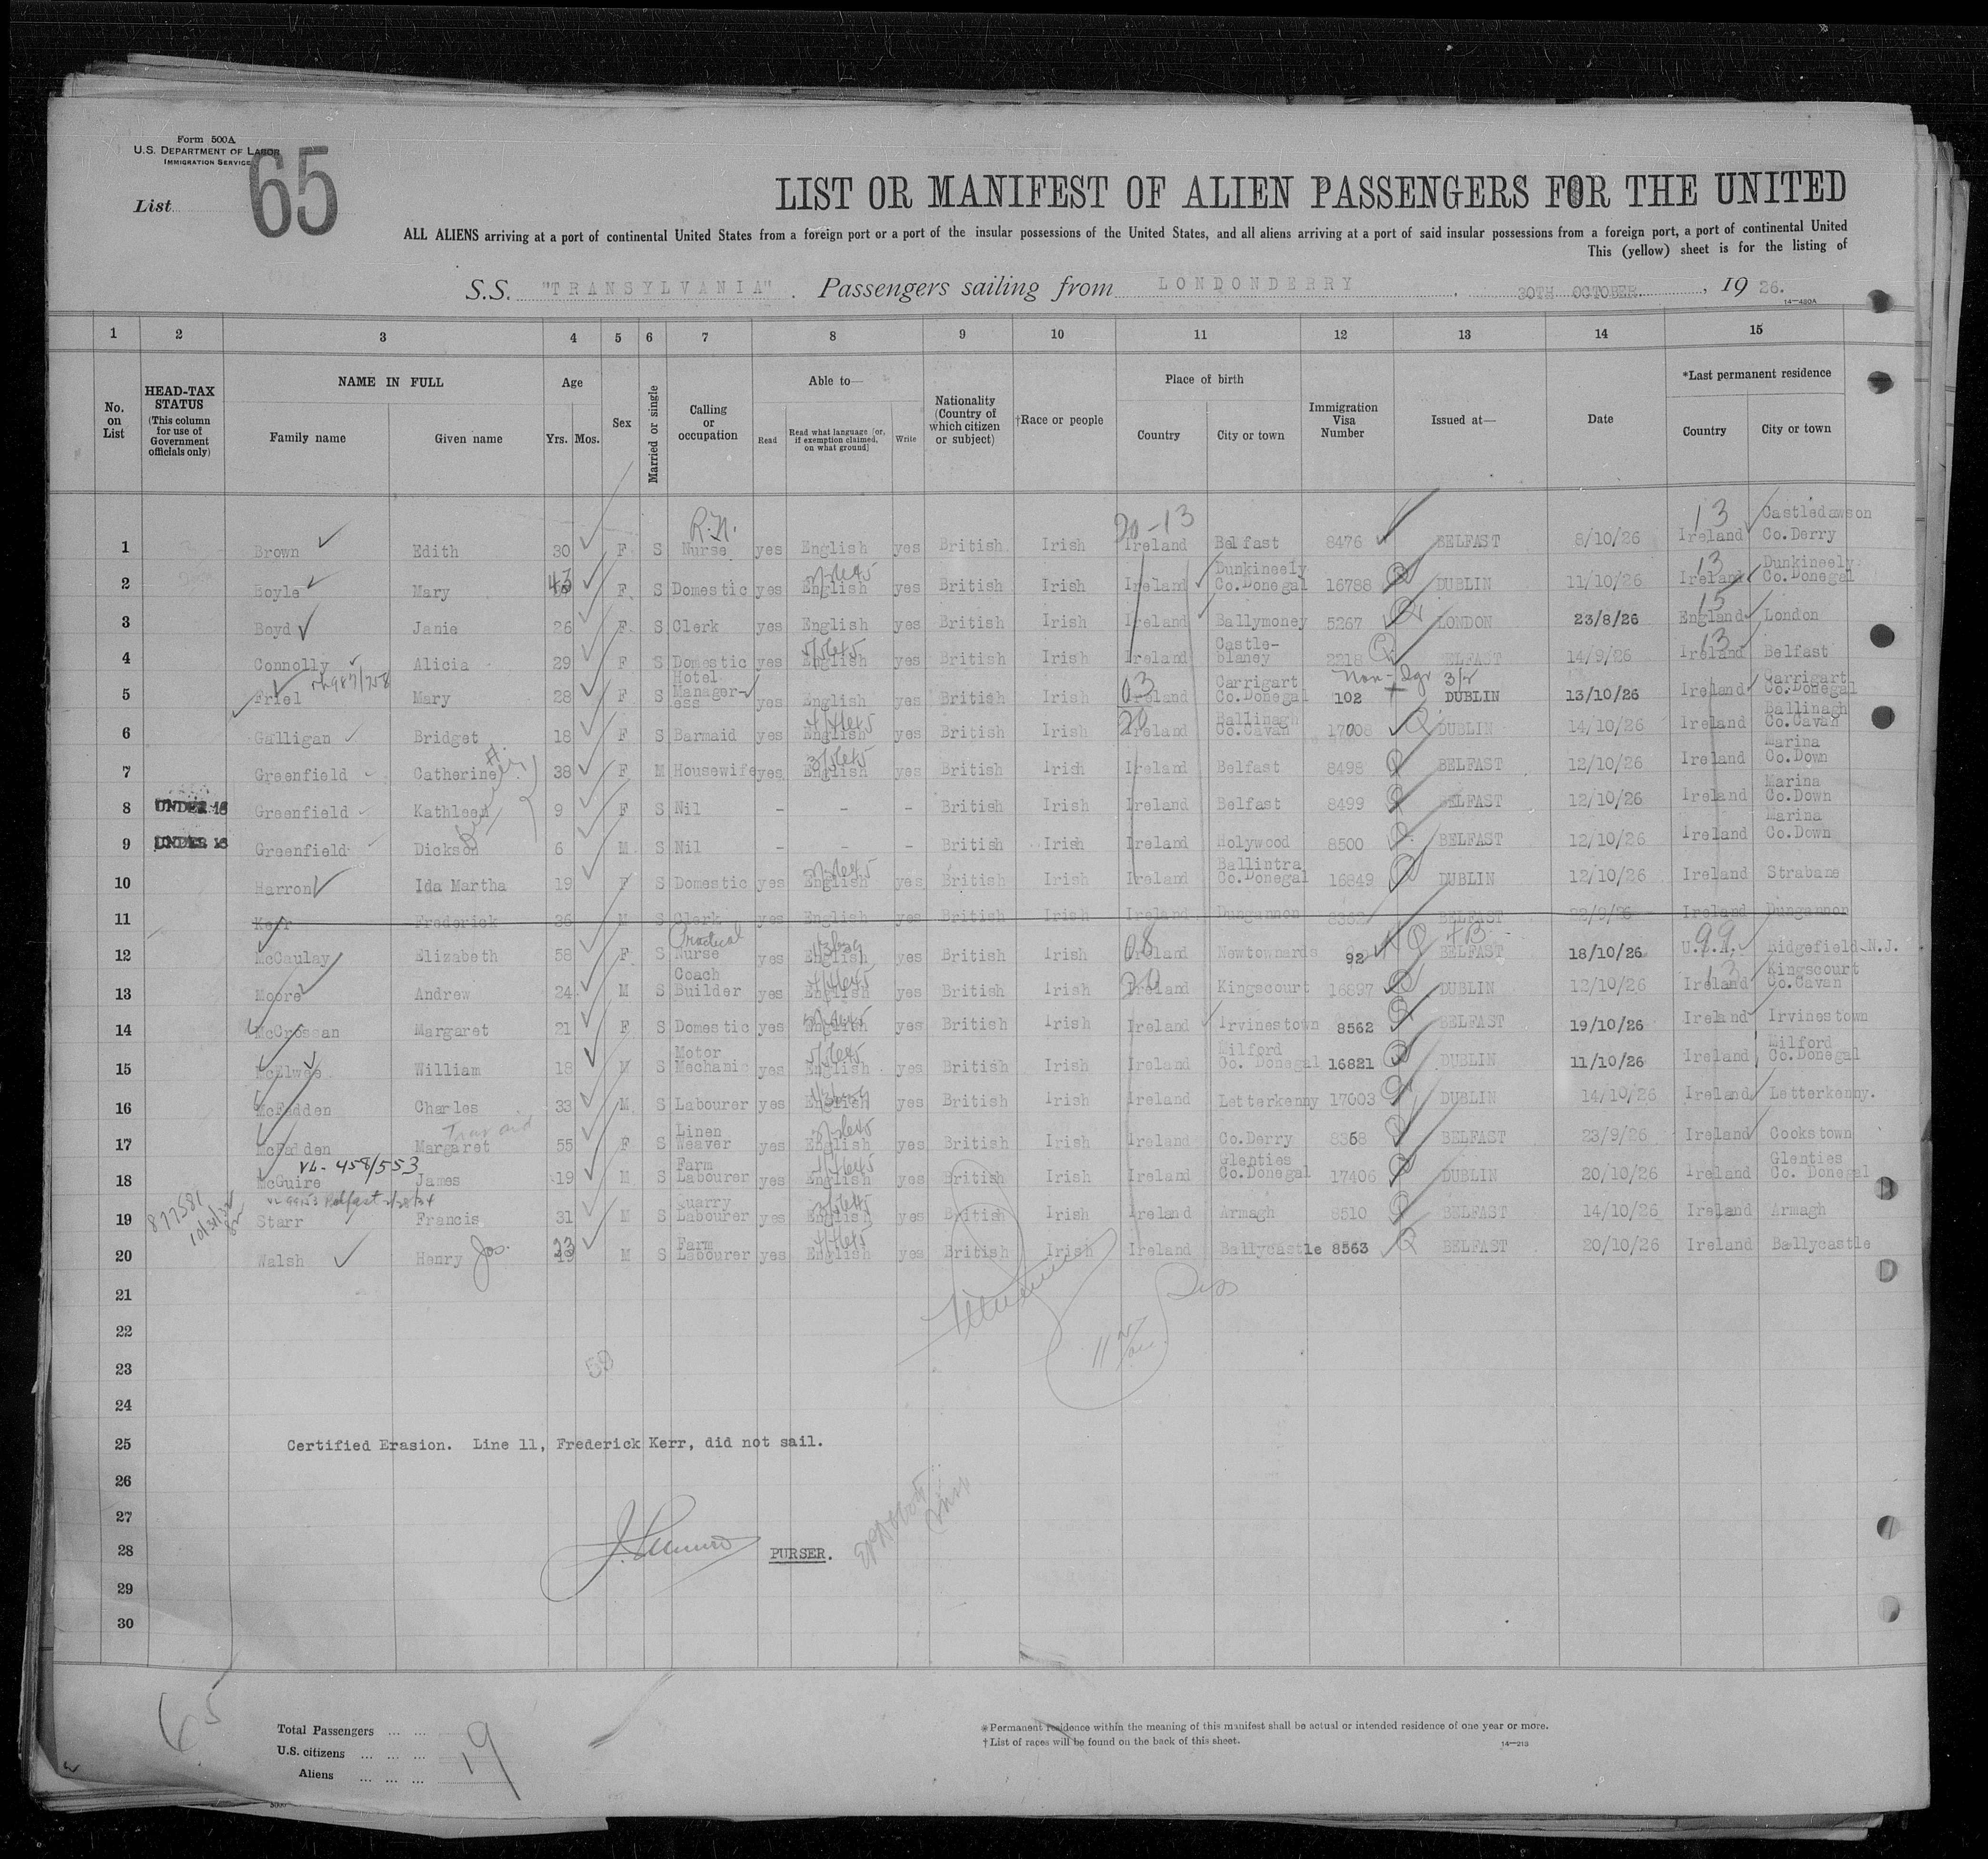 Form 500A
U.S. DEPARTMENT OF LABOR
IMMIGRATION SERVICE
List 65
LIST OR MANIFEST OF ALIEN PASSENGERS FOR THE UNITED
ALL ALIENS arriving at a port of continental United States from a foreign port or a port of the insular possessions of the United States, and all aliens arriving at a port of said insular possessions from a foreign port, a port of continental United
This (yellow) sheet is for the listing of
S.S. "TRANSYLVANIA". Passengers sailing from LONDONDERRY, 30TH OCTOBER, 1926.
14—480A
1 2 3 4 5 6 7 8 9 10 11 12 13 14 15
No. on List
HEAD-TAX STATUS (This column for use of Government officials only)
NAME IN FULL Family name Given name
Age Yrs. Mos.
Sex
Married or single
Calling or occupation
Able to— Read Read what language [or, if exemption claimed, on what ground] Write
Nationality (Country of which citizen or subject)
†Race or people
Place of birth Country City or town
Immigration Visa Number
Issued at—
Date
*Last permanent residence Country City or town
R.N. 20-13 13 Castledawson
1 Brown Edith 30 F S Nurse yes English yes British Irish Ireland Belfast 8476 BELFAST 8/10/26 Ireland Co.Derry
Dunkineely 13 Dunkineely
2 Boyle Mary 43 F S Domestic yes English yes British Irish Ireland Co.Donegal 16788 DUBLIN 11/10/26 Ireland Co.Donegal
15
3 Boyd Janie 26 F S Clerk yes English yes British Irish Ireland Ballymoney 5267 LONDON 23/8/26 England London
Castle- 13
4 Connolly Alicia 29 F S Domestic yes English yes British Irish Ireland blaney 2218 BELFAST 14/9/26 Ireland Belfast
Hotel Manager- Carrigart Carrigart
5 Friel Mary 28 F S ess yes English yes British Irish Ireland Co.Donegal 102 DUBLIN 13/10/26 Ireland Co.Donegal
Ballinagh Ballinagh
6 Galligan Bridget 18 F S Barmaid yes English yes British Irish Ireland Co.Cavan 17008 DUBLIN 14/10/26 Ireland Co.Cavan
Marina
7 Greenfield Catherine H. 38 F M Housewife yes English yes British Irish Ireland Belfast 8498 BELFAST 12/10/26 Ireland Co.Down
Marina
8 UNDER 16 Greenfield Kathleen 9 F S Nil - - - British Irish Ireland Belfast 8499 BELFAST 12/10/26 Ireland Co.Down
Marina
9 UNDER 16 Greenfield Dickson 6 M S Nil - - - British Irish Ireland Holywood 8500 BELFAST 12/10/26 Ireland Co.Down
Ballintra
10 Harron Ida Martha 19 F S Domestic yes English yes British Irish Ireland Co.Donegal 16849 DUBLIN 12/10/26 Ireland Strabane
11 Kerr Frederick 36 M S Clerk yes English yes British Irish Ireland Dungannon BELFAST 22/9/26 Ireland Dungannon
Practical 99
12 McCaulay Elizabeth 58 F S Nurse yes English yes British Irish Ireland Newtownards 92 BELFAST 18/10/26 U.S.A. Ridgefield N.J.
Coach 13 Kingscourt
13 Moore Andrew 24 M S Builder yes English yes British Irish Ireland Kingscourt 16897 DUBLIN 12/10/26 Ireland Co.Cavan
14 McCrossan Margaret 21 F S Domestic yes English yes British Irish Ireland Irvinestown 8562 BELFAST 19/10/26 Ireland Irvinestown
Motor Milford Milford
15 McElwee William 18 M S Mechanic yes English yes British Irish Ireland Co. Donegal 16821 DUBLIN 11/10/26 Ireland Co.Donegal
16 McFadden Charles 33 M S Labourer yes English yes British Irish Ireland Letterkenny 17003 DUBLIN 14/10/26 Ireland Letterkenny.
Linen
17 McFadden Margaret 55 F S Weaver yes English yes British Irish Ireland Co.Derry 8368 BELFAST 23/9/26 Ireland Cookstown
VL-458/553 Farm Glenties Glenties
18 McGuire James 19 M S Labourer yes English yes British Irish Ireland Co.Donegal 17406 DUBLIN 20/10/26 Ireland Co. Donegal
Quarry
19 Starr Francis 31 M S Labourer yes English yes British Irish Ireland Armagh 8510 BELFAST 14/10/26 Ireland Armagh
Farm
20 Walsh Henry Jos. 23 M S Labourer yes English yes British Irish Ireland Ballycastle 8563 BELFAST 20/10/26 Ireland Ballycastle
21
22
23
24
25 Certified Erasion. Line 11, Frederick Kerr, did not sail.
26
27
28 PURSER.
29
30
65
Total Passengers ... ...
U.S. citizens ... ... ...
Aliens ... ... ...
19
*Permanent residence within the meaning of this manifest shall be actual or intended residence of one year or more.
†List of races will be found on the back of this sheet.
14—213